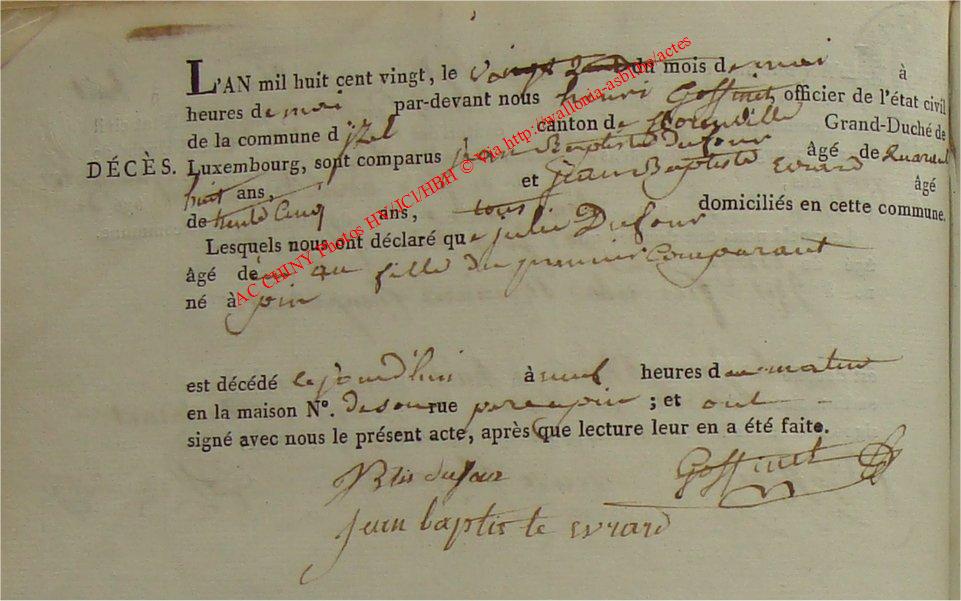 L'AN mil huit cent vingt, le vingt du mois de mai à
heures de mai par-devant nous henri Goffinet, officier de l'état civil
de la commune d'jzel canton de florenville Grand-Duché de
DÉCÈS. Luxembourg, sont comparus jean Baptiste Dufour âgé de quarante
huit ans, et jean Baptiste evrard âgé
de trente Cinq ans, tous domiciliés en cette commune.
Lesquels nous ont déclaré que julie Dufour
âgé de an fille du premier Comparant
né à pin
est décédé cejourd'hui à neuf heures du matin
en la maison N°. de son rue pere a pin ; et ont
signé avec nous le présent acte, après que lecture leur en a été faite.
Goffinet
jean baptiste evrard
AC CHINY Photos HH/JCI/HBH © via http://wallonia-asbl.be/actes